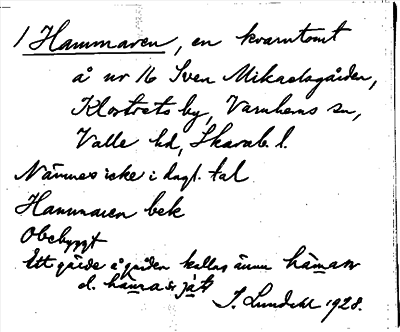 1 Hammaren, en kvarntomt
å nr 16 Sven Mikaelsgården,
Klostrets by, Varnhems sn,
Valle hd, Skarab. l.
Nämnes icke i dagl. tal
Hammaren bek
Obebyggt
Ett gärde å gården kallas ännu
d.
J. Lundahl 1928.